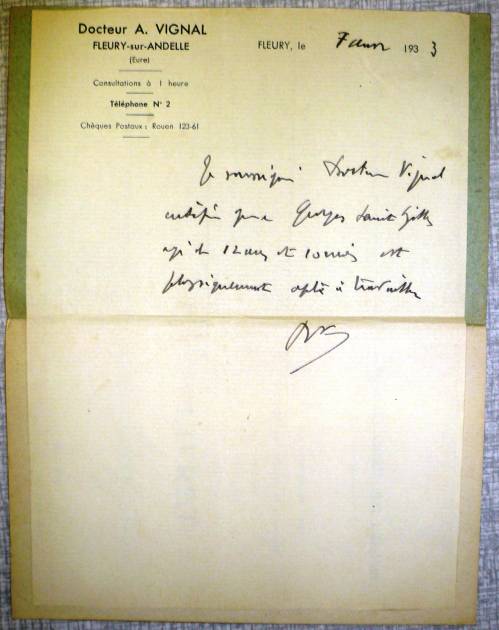 Docteur A. VIGNAL
FLEURY-sur-ANDELLE
(Eure)
Consultations à 1 heure
Téléphone N° 2
Chèques Postaux : Rouen 123-61
FLEURY, le 7 1933
Je soussigné Docteur Vignal
certifie que Georges Saint Gilles
agé de 12 ans et 10 mois est
physiquement apte à travailler